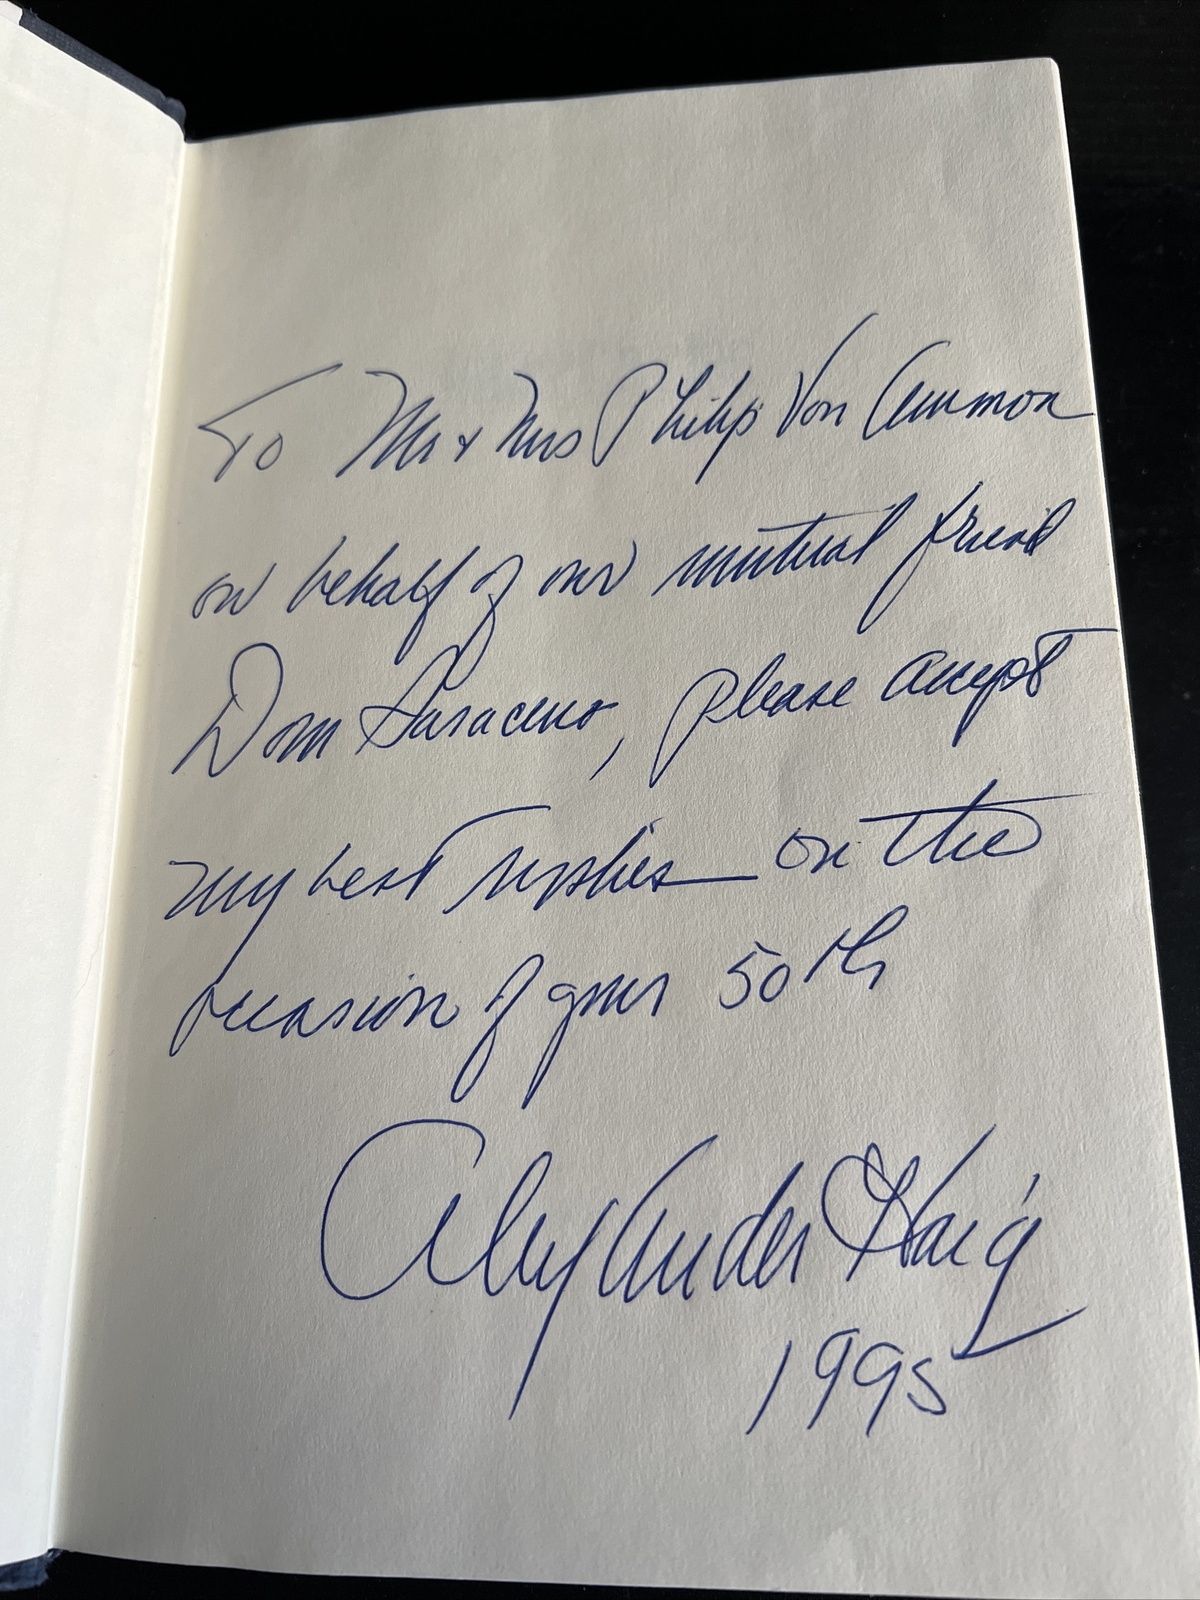 To Mr & Mrs Philip Von Ammon
on behalf of our mutual friend
Dom Saraceno, please accept
my best wishes on the
occasion of your 50th
Alexander Haig
1995